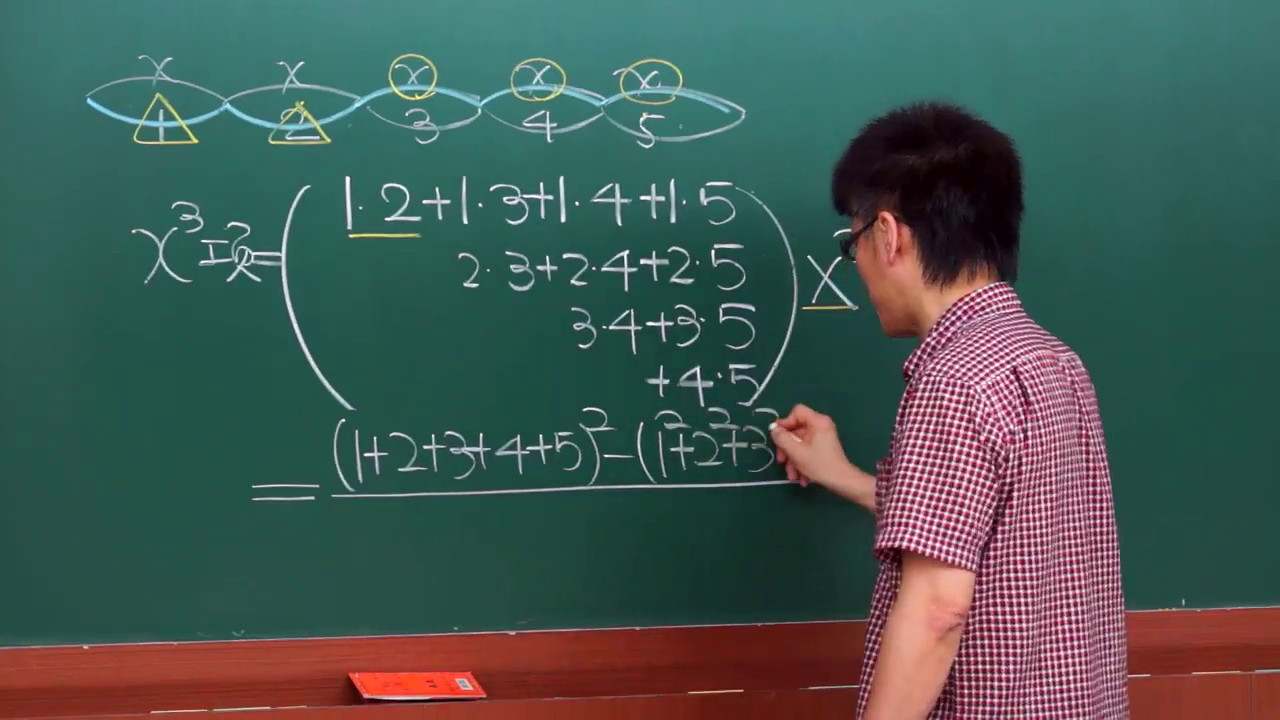 x x x x x
1 2 3 4 5
x³ 의 계수 = ( 1·2+1·3+1·4+1·5
2·3+2·4+2·5
3·4+3·5
+4·5 ) x
= (1+2+3+4+5)² - (1²+2²+3²